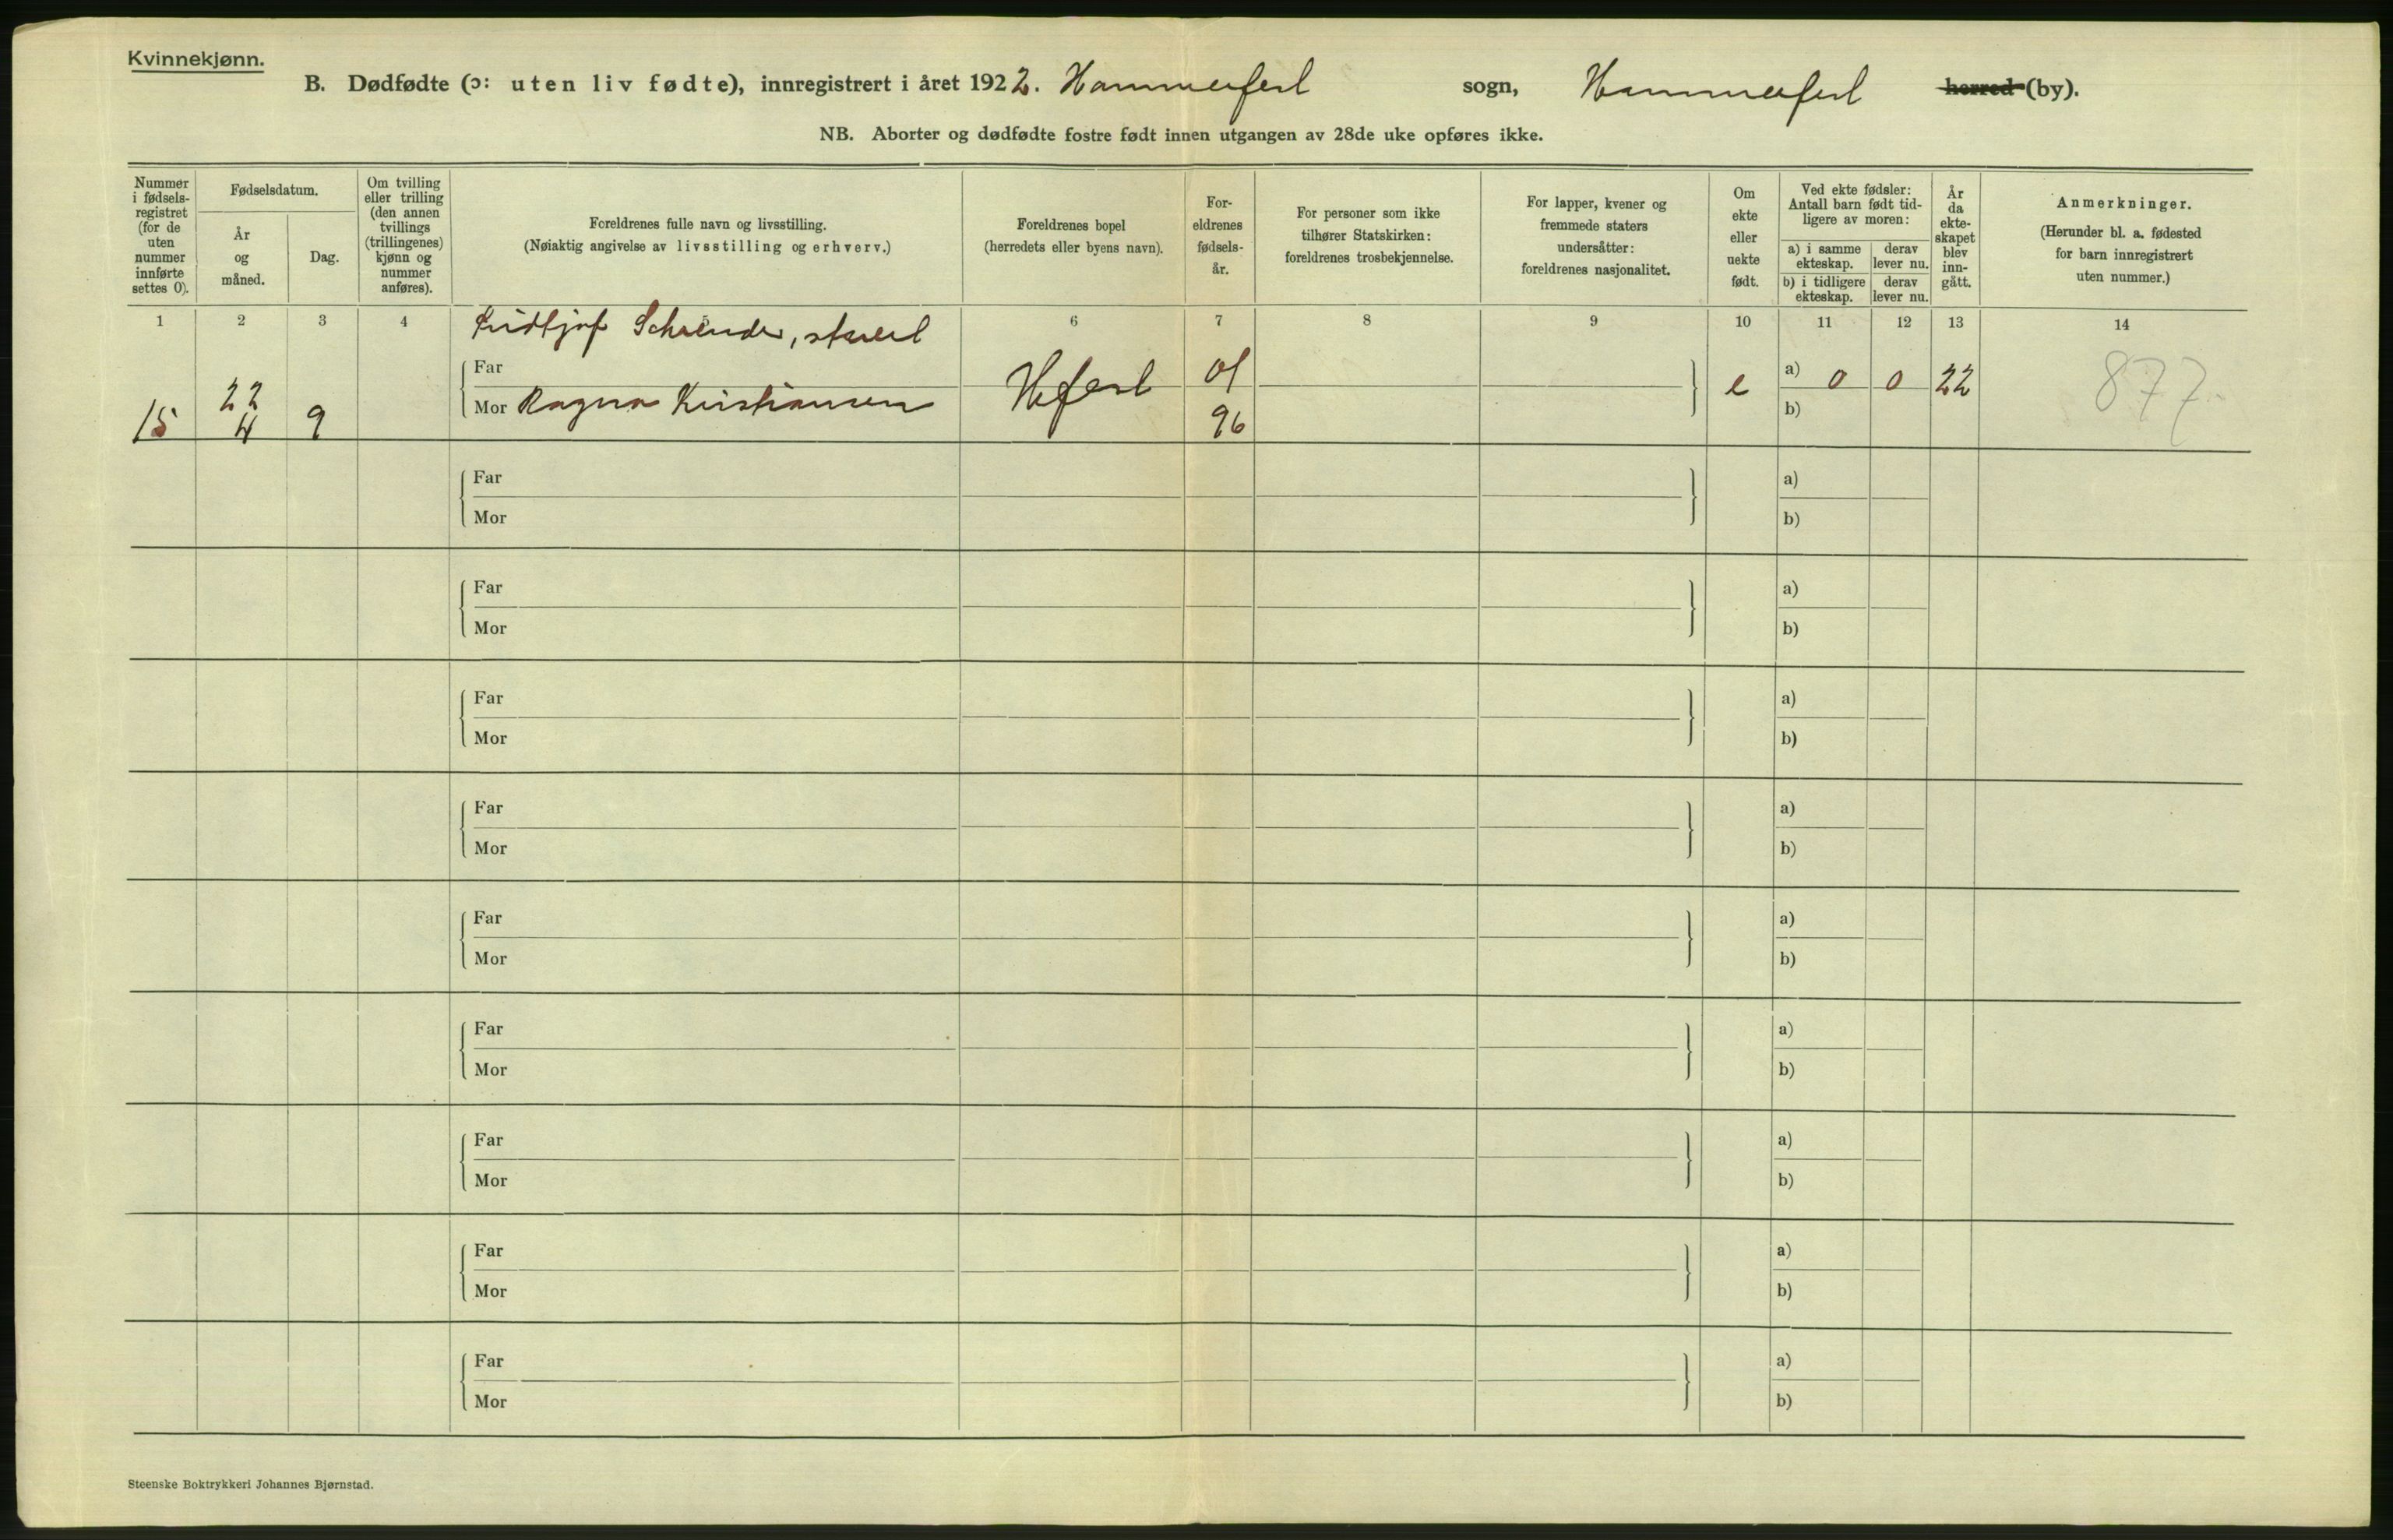 Kvinnekjønn.
B. Dødfødte (ɔ: uten liv fødte), innregistrert i året 1922. Hammerfest sogn, Hammerfest herred (by).
NB. Aborter og dødfødte fostre født innen utgangen av 28de uke opføres ikke.
Nummer i fødsels-registret (for de uten nummer innførte settes 0).
Fødselsdatum.
År og måned.
Dag.
Om tvilling eller trilling (den annen tvillings (trillingenes) kjønn og nummer anføres).
Foreldrenes fulle navn og livsstilling.
(Nøiaktig angivelse av livsstilling og erhverv.)
Foreldrenes bopel
(herredets eller byens navn).
For-eldrenes fødsels-år.
For personer som ikke tilhører Statskirken: foreldrenes trosbekjennelse.
For lapper, kvener og fremmede staters undersåtter: foreldrenes nasjonalitet.
Om ekte eller uekte født.
Ved ekte fødsler: Antall barn født tid-ligere av moren:
a) i samme ekteskap.
derav lever nu.
b) i tidligere ekteskap.
derav lever nu.
År da ekte-skapet blev inn-gått.
Anmerkninger.
(Herunder bl. a. fødested for barn innregistrert uten nummer.)
1 2 3 4 5 6 7 8 9 10 11 12 13 14
Far Schrøder,
Mor Ragna Kristiansen
15 22 4 9 Hfest 01 96 e a) 0 0 22 877
b)
Far a)
Mor b)
Far a)
Mor b)
Far a)
Mor b)
Far a)
Mor b)
Far a)
Mor b)
Far a)
Mor b)
Far a)
Mor b)
Far a)
Mor b)
Far a)
Mor b)
Steenske Boktrykkeri Johannes Bjørnstad.